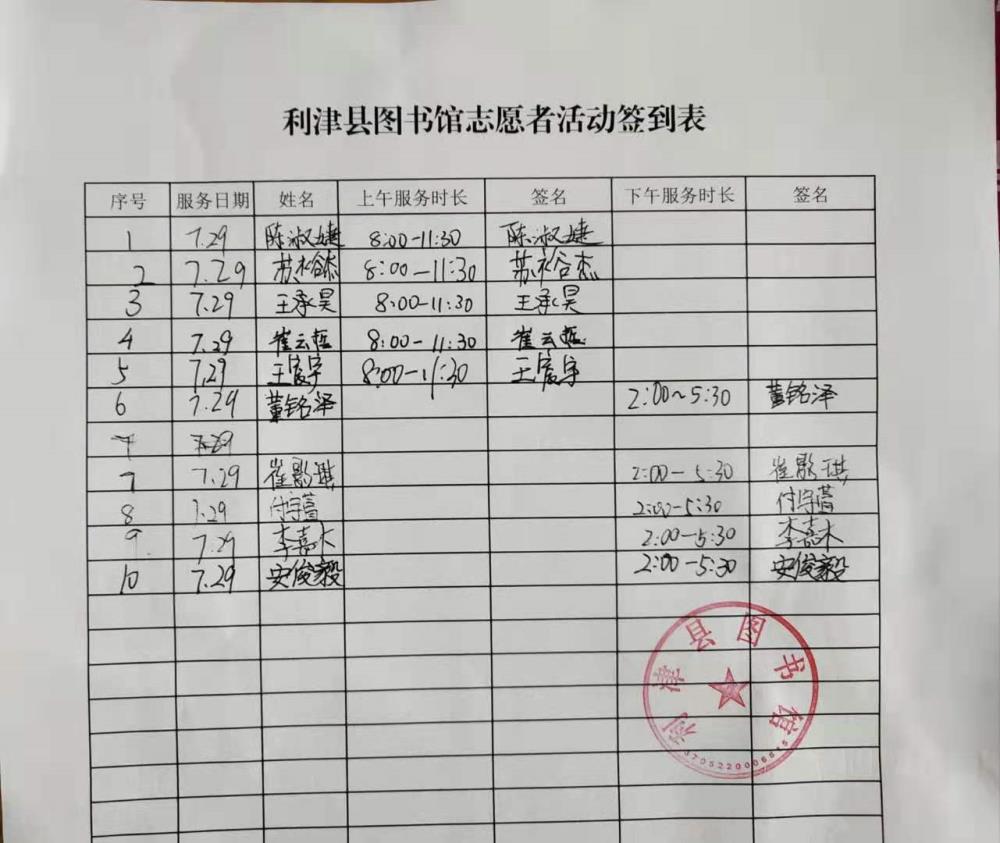 利津县图书馆志愿者活动签到表
序号 服务日期 姓名 上午服务时长 签名 下午服务时长 签名
1 7.29 陈淑婕 8:00-11:30 陈淑婕
2 7.29 苏裕杰 8:00-11:30 苏裕杰
3 7.29 王承昊 8:00-11:30 王承昊
4 7.29 崔云哲 8:00-11:30 崔云哲
5 7.29 8:00-11:30
6 7.29 董铭泽 2:00~5:30 董铭泽
7 7.29
7 7.29 崔影琪 2:00-5:30 崔影琪
8 7.29 2:00-5:30
9 7.29 李嘉木 2:00-5:30 李嘉木
10 7.29 安俊毅 2:00-5:30 安俊毅
利津县图书馆